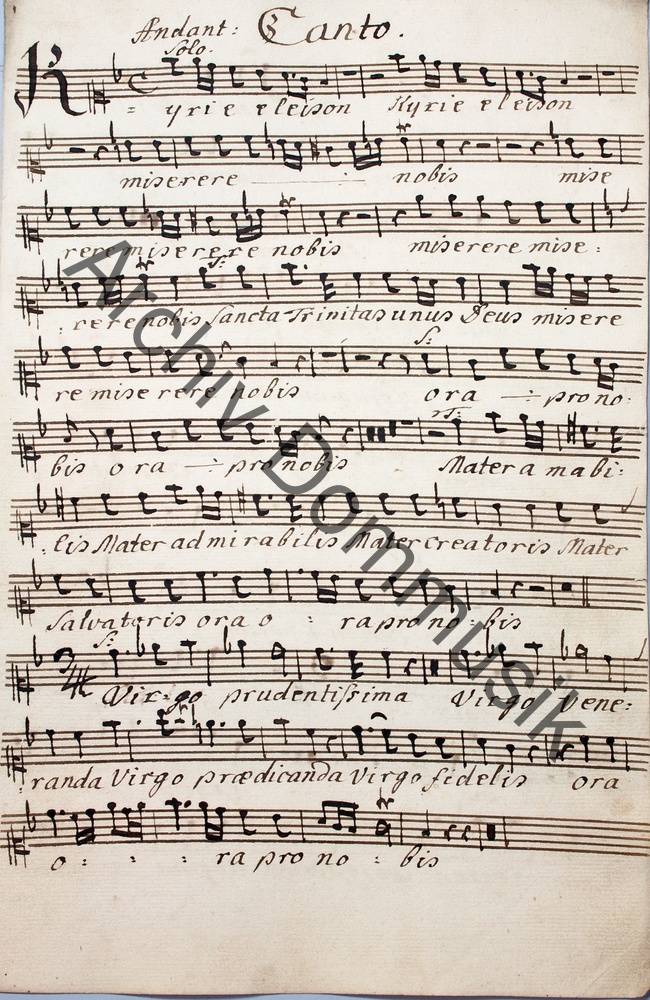 Andant: Canto.
Solo.
Kyrie eleison Kyrie eleison
miserere nobis mise
rere miserere nobis miserere mise:
S:
:rere nobis Sancta Trinitas unus Deus misere
S:
re miserere nobis ora pro no:
S:
bis ora pro nobis Mater amabi:
:lis Mater admirabilis Mater Creatoris Mater
Salvatoris ora o : ra pro no:bis
S:
Virgo prudentissima Virgo Vene:
randa Virgo prædicanda Virgo fidelis ora
o : : : ra pro no : bis
Archiv Dommusik